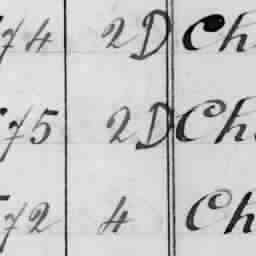 74 2D Ch
75 2D Ch
72 4 Ch